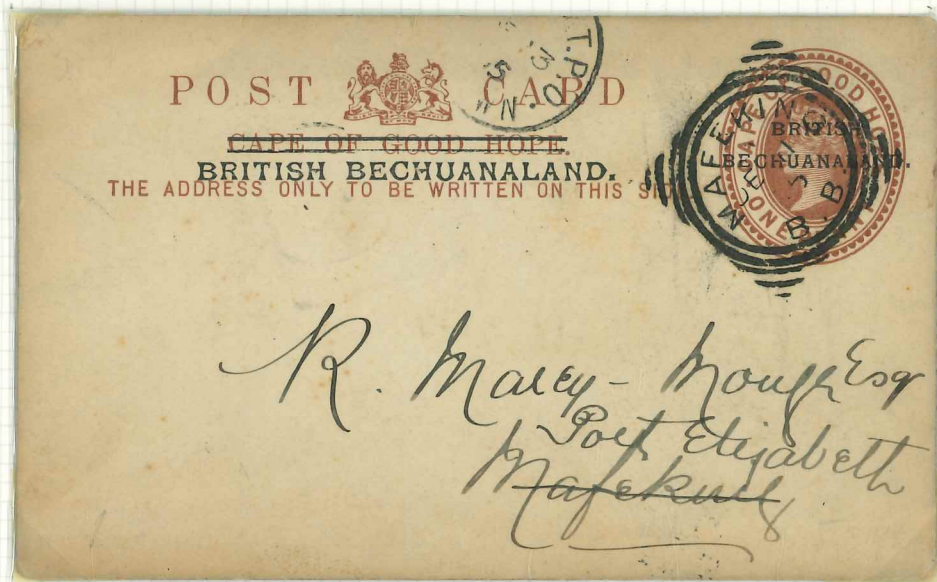 POST CARD
CAPE OF GOOD HOPE.
BRITISH BECHUANALAND.
THE ADDRESS ONLY TO BE WRITTEN ON THIS
CAPE OF GOOD HOPE
ONE PENNY
BRITISH
BECHUANALAND.
MAFEKING
B.B.
R. Marcy - Esq
Port Elizabeth
Mafeking